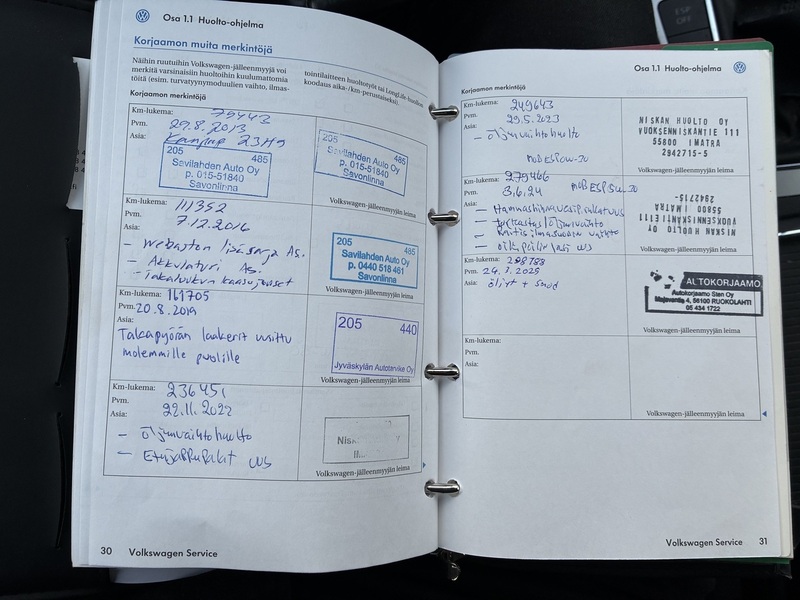 Osa 1.1 Huolto-ohjelma
Korjaamon muita merkintöjä
Näihin ruutuihin Volkswagen-jälleenmyyjä voi
merkitä varsinaisiin huoltoihin kuulumattomia
töitä (esim. turvatyynymoduulien vaihto, ilmas-
tointilaitteen huoltotyöt tai LongLife-huollon
koodaus aika-/km-perustaiseksi).
Korjaamon merkintöjä
Km-lukema: 75443
Pvm. 29.8.2013
Asia:
205 485
Savilahden Auto Oy
p. 015-51840
Savonlinna
205 485
Savilahden Auto Oy
p. 015-51840
Savonlinna
Km-lukema: 111352
Pvm. 7.12.2016
Asia:
- Webaston lisäsarja As.
- Akkulaturi As.
- Takaluukun kaasujouset
205 485
Savilahden Auto Oy
p. 0440 518 461
Savonlinna
Volkswagen-jälleenmyyjän leima
Km-lukema: 161705
Pvm. 20.8.2019
Asia:
Takapyörän laakerit uusittu
molemmille puolille
205 440
Jyväskylän Autotarvike Oy
Volkswagen-jälleenmyyjän leima
Km-lukema: 236451
Pvm. 22.11.2022
Asia:
- Öljynvaihtohuolto
- Etujarrupalat uus
Volkswagen-jälleenmyyjän leima
30 Volkswagen Service
Osa 1.1 Huolto-ohjelma
Korjaamon merkintöjä
Km-lukema: 249643
Pvm. 29.5.2023
Asia: - Öljynvaihtohuolto
NISKAN HUOLTO OY
VUOKSENNISKANTIE 111
55800 IMATRA
2942715-5
Volkswagen-jälleenmyyjän leima
Km-lukema: 279466
Pvm. 3.6.24
Asia:
- Hammashihnavaihto
NISKAN HUOLTO OY
VUOKSENNISKANTIE 111
55800 IMATRA
2942715-
Volkswagen-jälleenmyyjän leima
Km-lukema: 298788
Pvm. 24.7.2025
Asia: öljyt + suod
ALTOKORJAAMO
Autokorjaamo Sten Oy
Majaventie 4, 56100 RUOKOLAHTI
05 434 1722
Volkswagen-jälleenmyyjän leima
Km-lukema:
Pvm.
Asia:
Volkswagen-jälleenmyyjän leima
Volkswagen Service 31
ESP
OFF